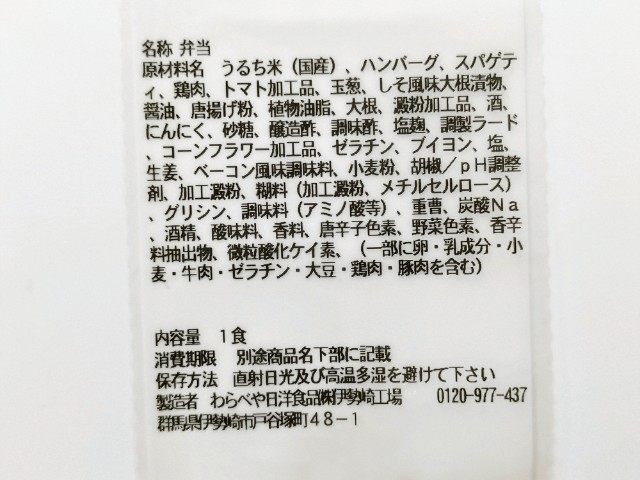 名称 弁当
原材料名　うるち米（国産）、ハンバーグ、スパゲテ
ィ、鶏肉、トマト加工品、玉葱、しそ風味大根漬物、
醤油、唐揚げ粉、植物油脂、大根、澱粉加工品、酒、
にんにく、砂糖、醸造酢、調味酢、塩麹、調製ラード
、コーンフラワー加工品、ゼラチン、ブイヨン、塩、
生姜、ベーコン風味調味料、小麦粉、胡椒／ｐＨ調整
剤、加工澱粉、糊料（加工澱粉、メチルセルロース）
、グリシン、調味料（アミノ酸等）、重曹、炭酸Ｎａ
、酒精、酸味料、香料、唐辛子色素、野菜色素、香辛
料抽出物、微粒酸化ケイ素、（一部に卵・乳成分・小
麦・牛肉・ゼラチン・大豆・鶏肉・豚肉を含む）
内容量　１食
消費期限　別途商品名下部に記載
保存方法　直射日光及び高温多湿を避けて下さい
製造者　わらべや日洋食品㈱伊勢崎工場　0120-977-437
群馬県伊勢崎市戸谷塚町４８－１